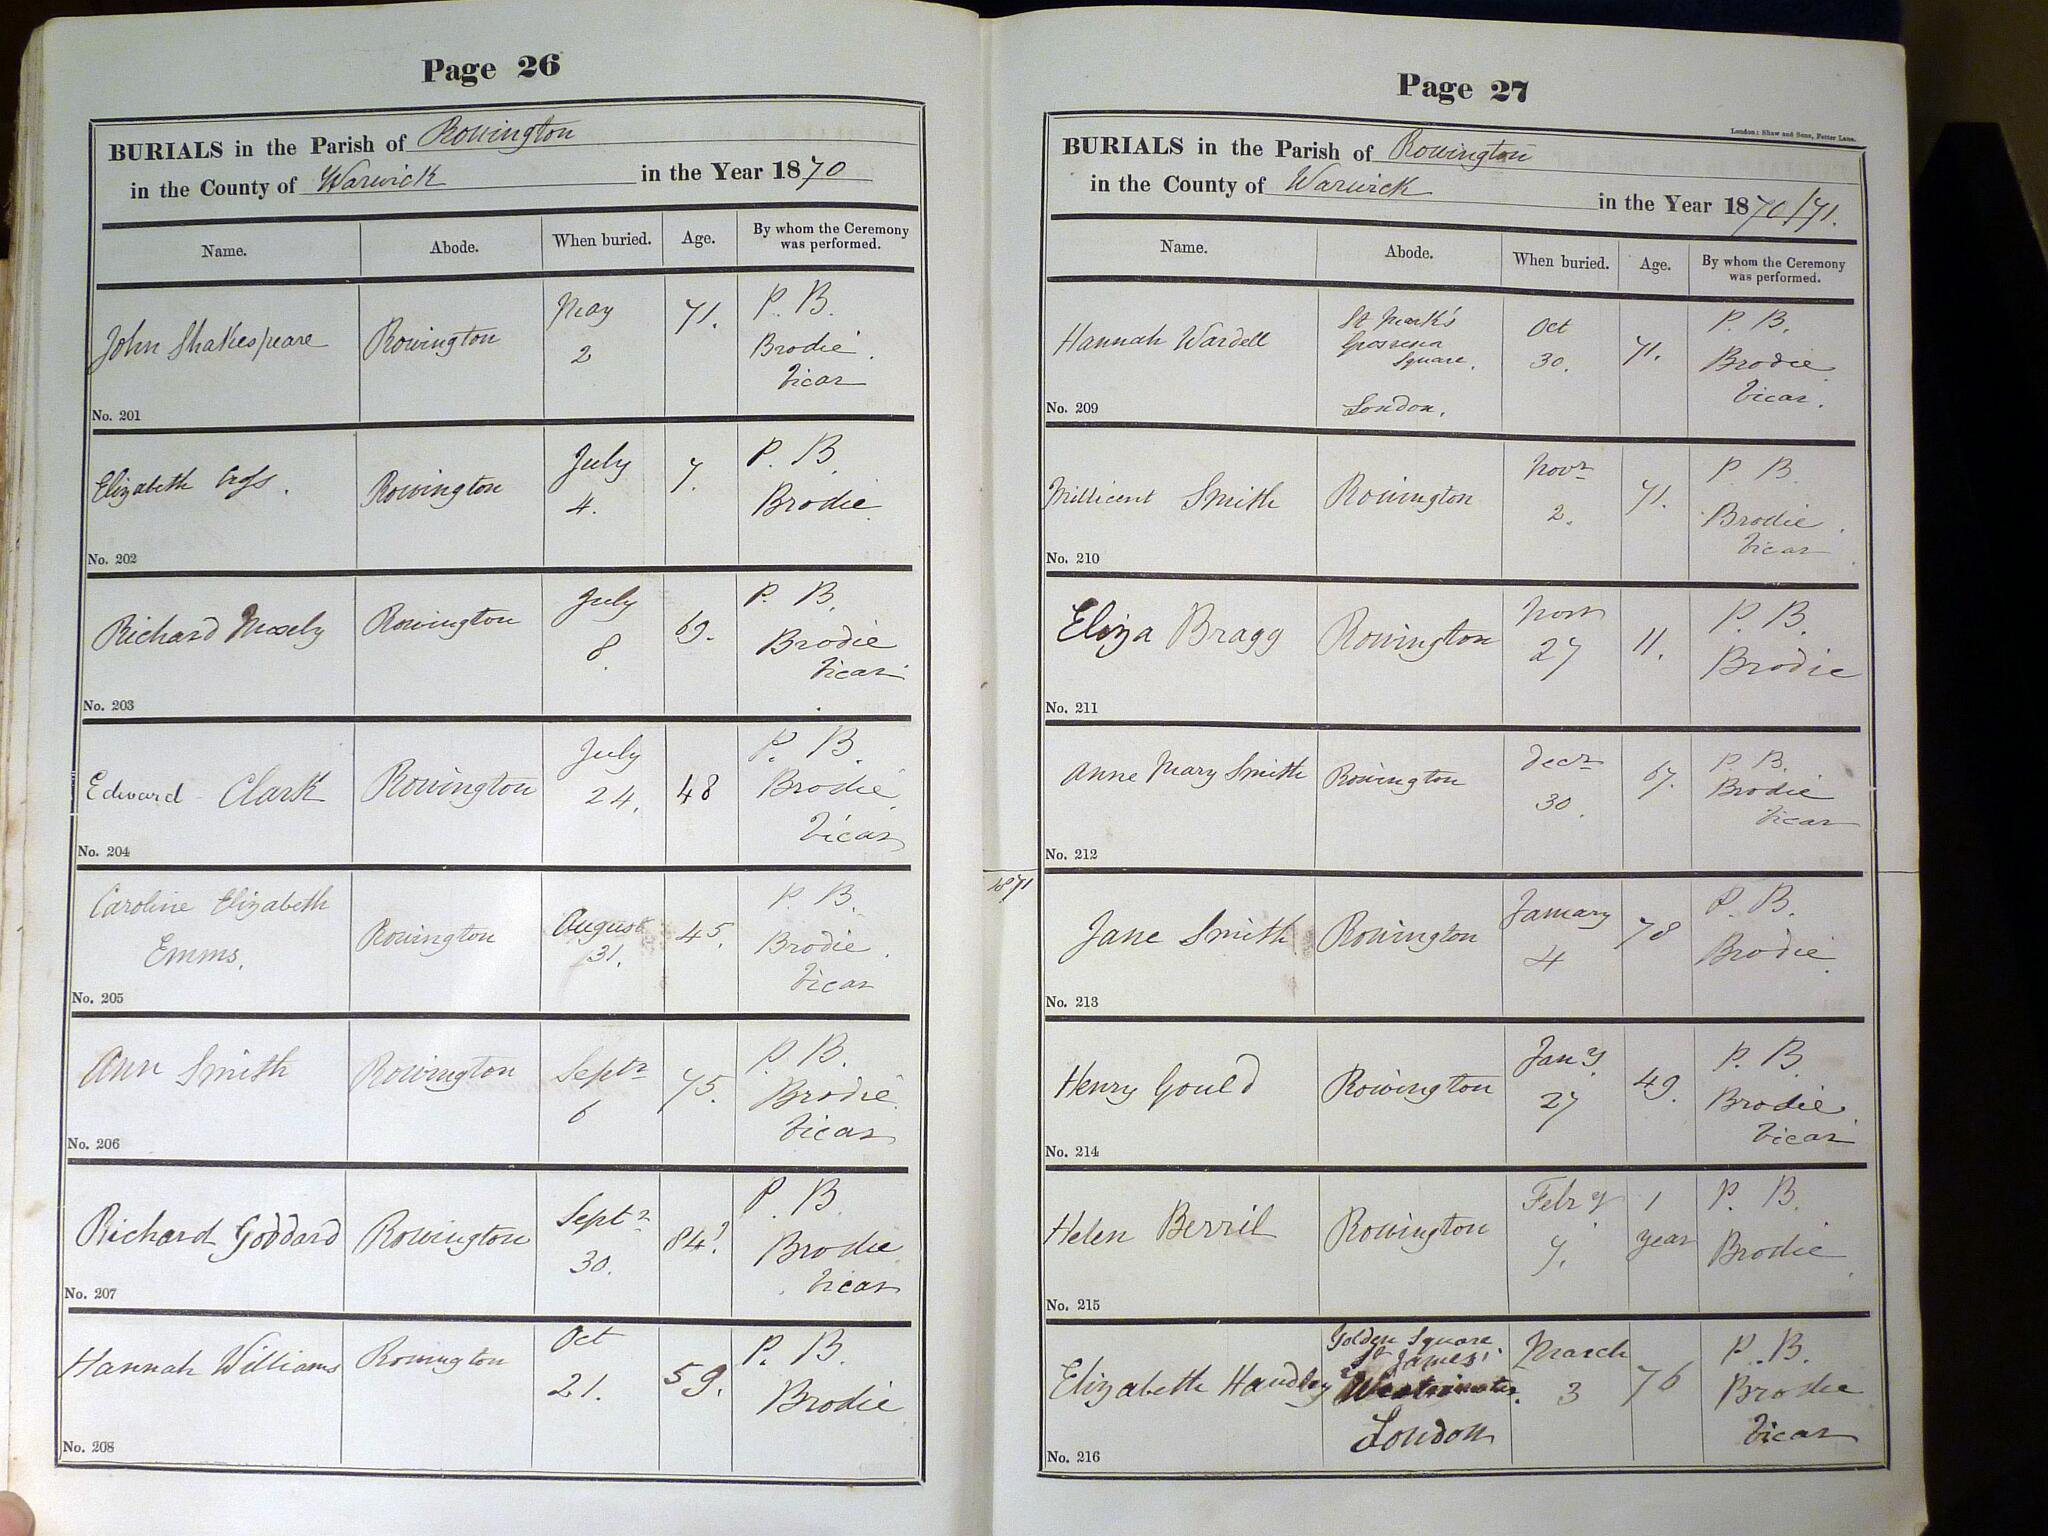 Page 26
BURIALS in the Parish of Rowington
in the County of Warwick in the Year 1870
Name. Abode. When buried. Age. By whom the Ceremony was performed.
John Shakespeare Rowington May 2 71. P. B. Brodie. Vicar
No. 201
Elizabeth Rowington July 4. 7. P. B. Brodie.
No. 202
Richard Mosely Rowington July 8. 69. P. B. Brodie Vicar
No. 203
Edward Clark Rowington July 24. 48 P. B. Brodie. Vicar
No. 204
Caroline Elizabeth Emms. Rowington August 31. 45. P. B. Brodie. Vicar
No. 205
Ann Smith Rowington Septr 6 75. P. B. Brodie. Vicar
No. 206
Richard Goddard Rowington Septr 30. 84. P. B. Brodie Vicar
No. 207
Hannah Williams Rowington Oct 21. 59. P. B. Brodie
No. 208
Page 27
London: Shaw and Sons, Fetter Lane.
BURIALS in the Parish of Rowington
in the County of Warwick in the Year 1870/71.
Name. Abode. When buried. Age. By whom the Ceremony was performed.
Hannah Wardell St Mark's Square. London. Oct 30. 71. P. B. Brodie. Vicar.
No. 209
Millicent Smith Rowington Novr 2. 71. P. B. Brodie. Vicar
No. 210
Eliza Bragg Rowington Novr 27 11. P. B. Brodie
No. 211
Anne Mary Smith Rowington Decr 30. 67. P. B. Brodie Vicar
No. 212
1871
Jane Smith Rowington January 4 78 P. B. Brodie.
No. 213
Henry Gould Rowington Jany. 27 49. P. B. Brodie. Vicar
No. 214
Helen Berril Rowington Febry 7. 1 year P. B. Brodie.
No. 215
Elizabeth Handley Golden Square St James' Westminster. London March 3 76 P. B. Brodie Vicar
No. 216